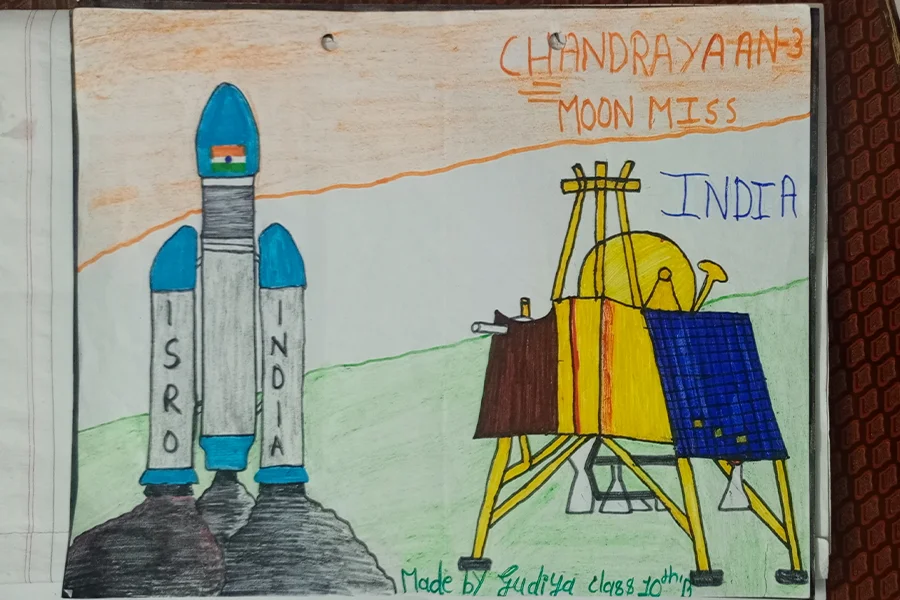 CHANDRAYAAN-3
MOON MISS
INDIA
ISRO
INDIA
Made by Gudiya class 10th'B